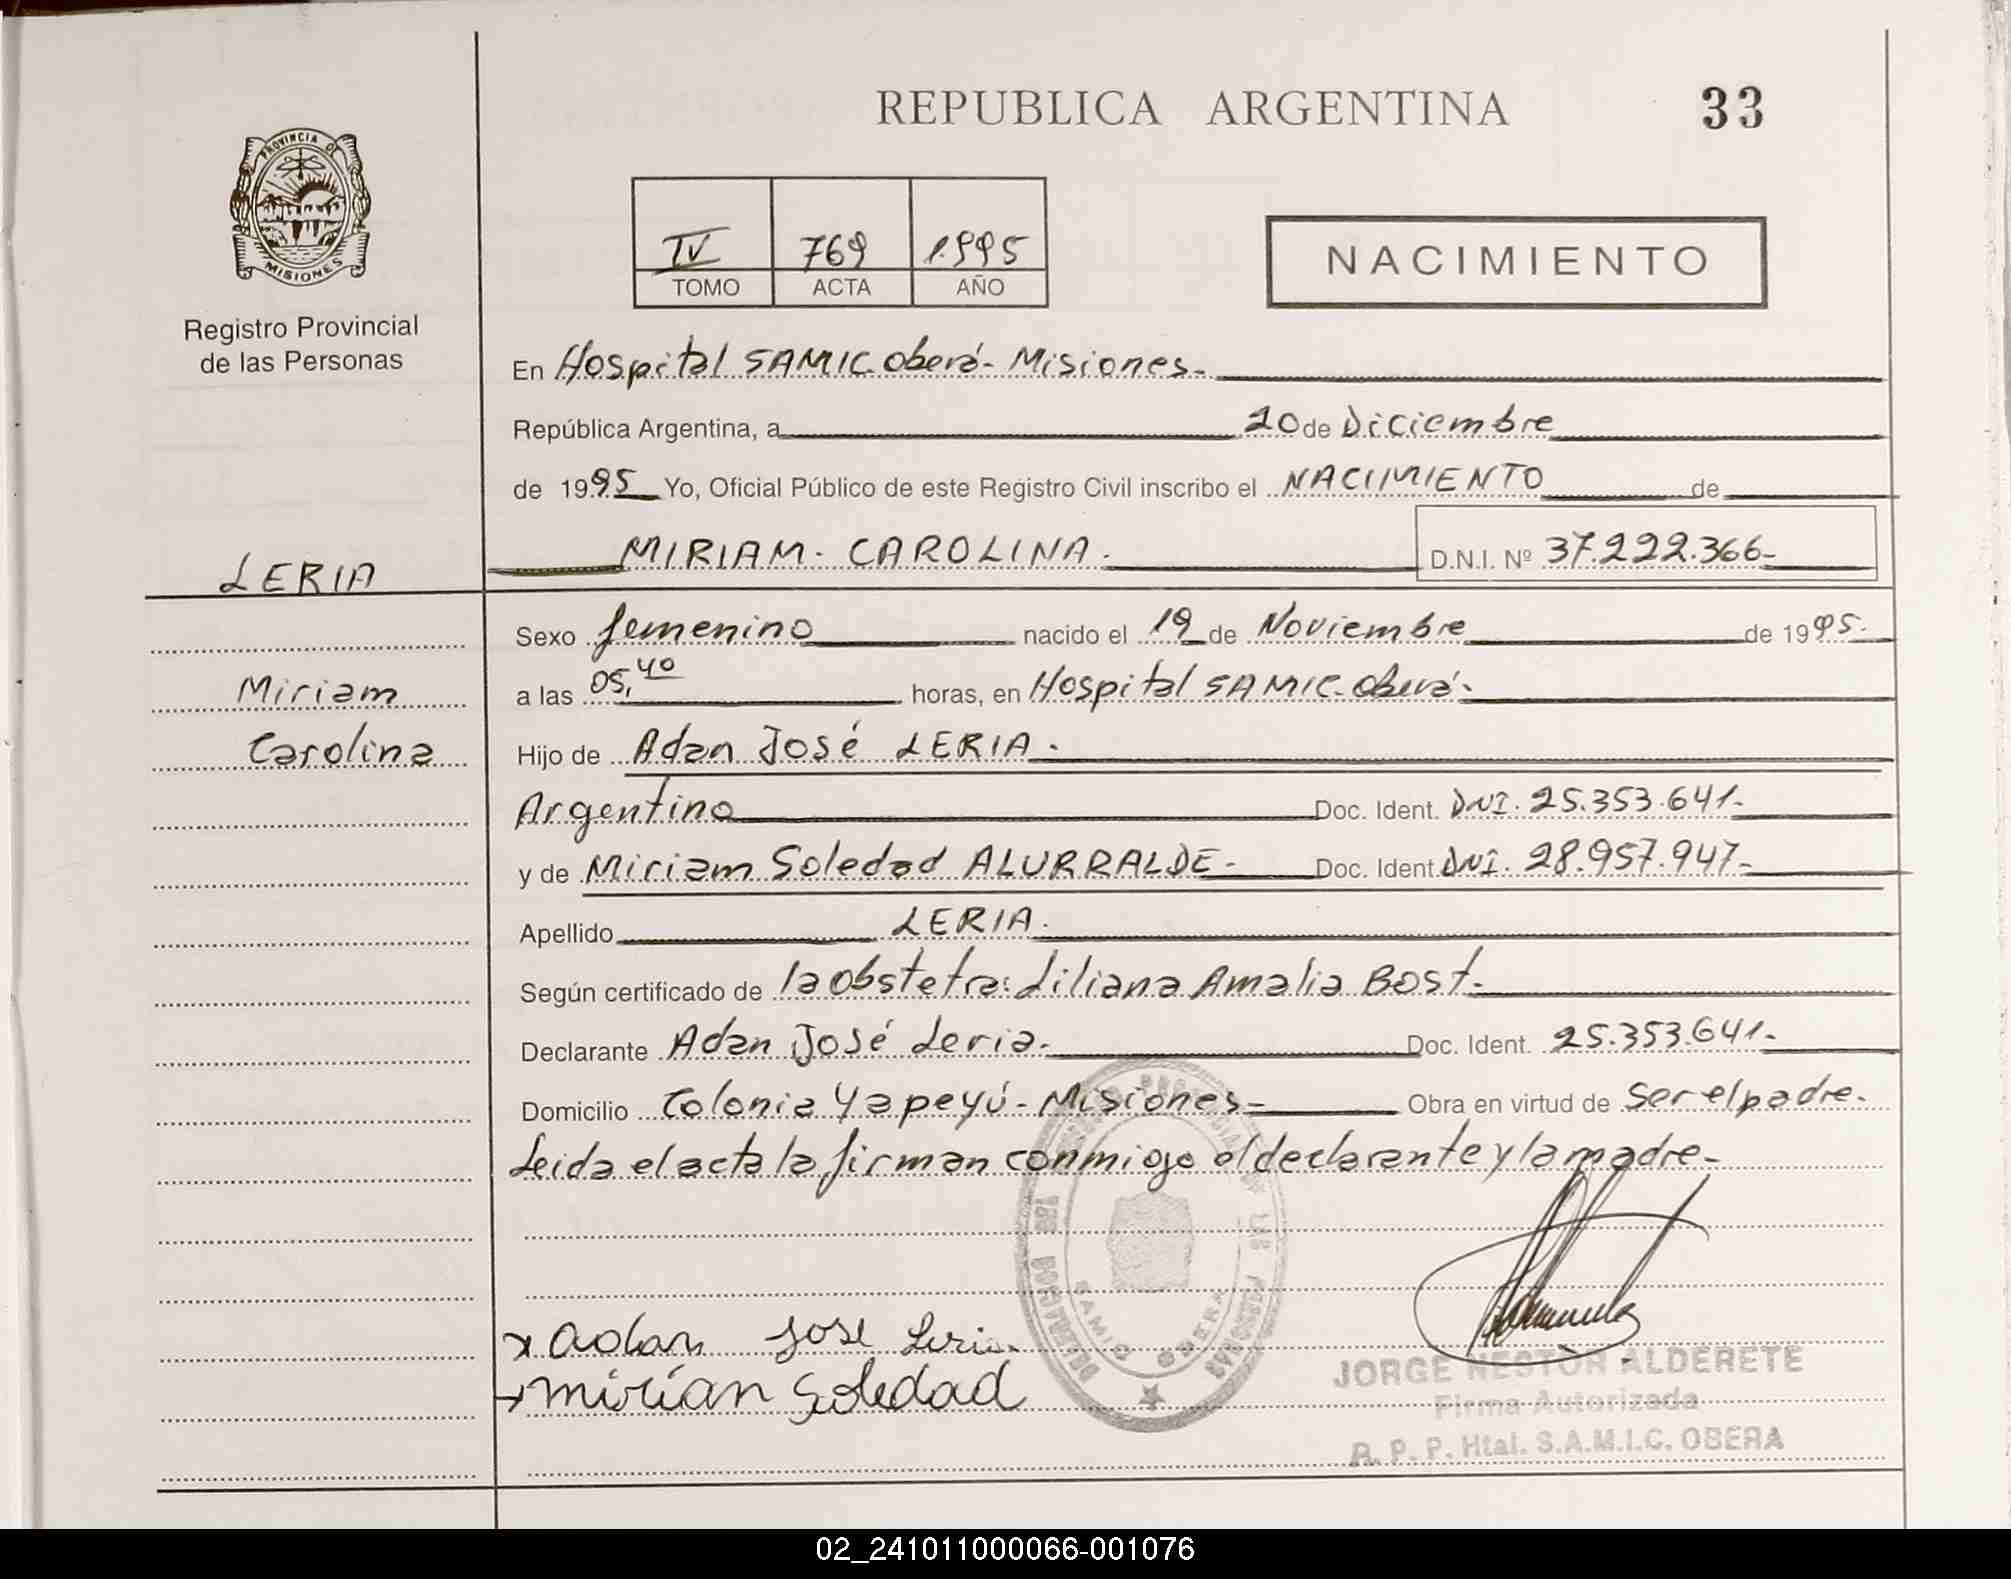 REPUBLICA ARGENTINA 33
PROVINCIA DE
MISIONES
Registro Provincial
de las Personas
IV 769 1995
TOMO ACTA AÑO
NACIMIENTO
En Hospital SAMIC Oberá - Misiones -
República Argentina, a 20 de Diciembre
de 1995 Yo, Oficial Público de este Registro Civil inscribo el NACIMIENTO de
LERIA
MIRIAM CAROLINA. D.N.I. Nº 37.222.366-
Miriam
Carolina
Sexo femenino nacido el 19 de Noviembre de 1995.
a las 05,40 horas, en Hospital SAMIC. Oberá.
Hijo de Adan José LERIA.
Argentino Doc. Ident. DNI. 25.353.641-
y de Miriam Soledad ALURRALDE - Doc. Ident DNI. 28.957.947-
Apellido LERIA.
Según certificado de la obstetra: Liliana Amalia Bost.
Declarante Adan José Leria. Doc. Ident. 25.353.641-
Domicilio Colonia Yapeyú - Misiones - Obra en virtud de ser el padre.
Leida el acta la firman conmigo el declarante y la madre -
x adan jose Leria
mirían Soledad
SAMIC OBERA
JORGE NESTOR ALDERETE
Firma Autorizada
R. P. P. Htal. S.A.M.I.C. OBERA
02_241011000066-001076